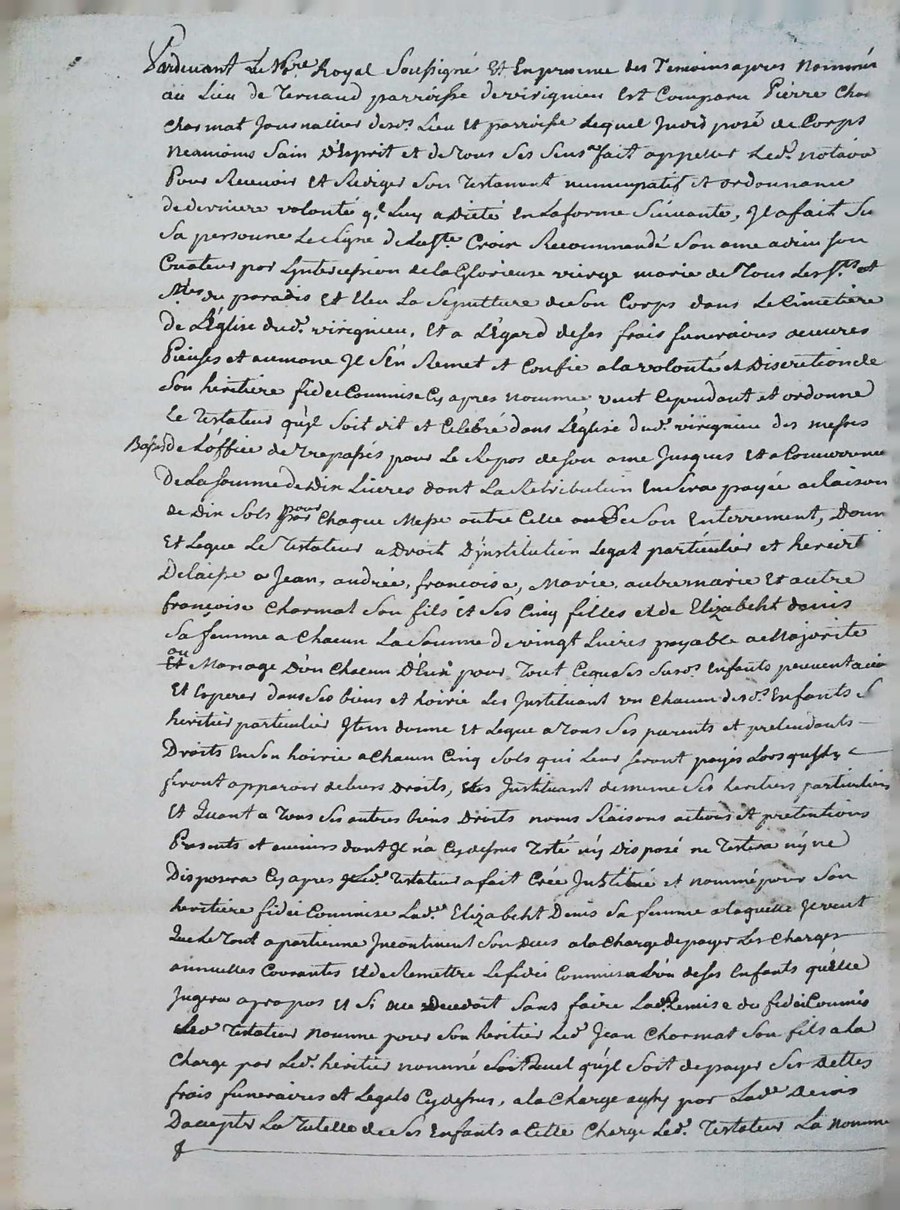 Pardevant Le Nre Royal Soussigné Et Enpresence des Temoins apres Nommés
au Lieu de Ternaud parroisse de virignieu Est Comparu Pierre
Charmat Journallier desd. Lieu et parroisse Lequel Indisposé de Corps
Neanmoins Sain D'Esprit et de tous Ses Sens a fait appeller Led. notaire
Pour Recevoir Et Rediger Son Testament nuncupatif et ordonnance
de derniere volonté q.l Luy a Dicté En La forme Suivante, Il a fait Su
Sa personne Le Signe de La Ste Croix Recommandé Son ame a dieu Son
Createur par L'intercession de la Glorieuse vierge marie de Tous Les Sts et
Stes du paradis Et Eleu La Sepulture de Son Corps dans Le Cimetiere
De L'Eglise dud. virignieu, Et a L'Egard de Ses frais funeraires oeuvres
Pieuses et aumone Il S'En Remet et Confie a la volonté et Discretion de
Son heritiere fidei Commise Cy apres nommée veut Cependant et ordonne
Le Testateur qu'il Soit dit et Celebré dans L'Eglise dud. virignieu des messes
Basses de L'office de Trepassés pour Le Repos de Son ame Jusques Et a Concurrence
De La Somme de Dix Livres dont La Retribution En Sera payée a Raison
de Dix Sols pour Chaque Messe outre Celle de Son Enterrement, Donne
Et Legue Le Testateur a Droit D'institution Legat particulier et
Delaisse a Jean, andrée, francoise, Marie, autre marie Et autre
françoise Charmat Son fils Et Ses Cinq filles et de Elizabeht denis
Sa femme a Chacun La Somme de vingt Livres payable a Majorité
ou Mariage D'un Chacun D'Eux pour Tout Ceque Ses susd. Enfants peuvent avoir
Et Esperer dans Ses biens et hoirie Les Instituant un Chacun desd. Enfants S
heritier particulier Item donne Et Legue a tous Ses parents et pretendants
Droits En Son hoirie a Chacun Cinq Sols qui Leur Seront payés Lorsqu'ils
feront apparoir de leurs Droits, Les Instituant de meme Ses heritiers particuliers
Et Quant a Tous Ses autres biens Droits noms Raisons actions et pretentions
Presents et avenirs dont Il n'a Cy dessus Testé n'y Disposé ne Testera n'y ne
Disposera Cy apres Led. Testateur a fait Crée Institué et nommé pour Son
heritiere fidei Commise Lad.e Elizabeht Denis Sa femme a laquelle Il veut
Que Le Tout apartienne Incontinent Son deces a la Charge de payer Les Charges
annuelles Courantes Et de Remettre Le fidei Commis a L'un de Ses Enfants qu'elle
Jugera a propos Et Si Elle Decedoit Sans faire Lad. Remise du fidei Commis
Led. Testateur Nomme pour Son heritier Led. Jean Charmat Son fils a la
Charge par Led. heritier nommé quel qu'il Soit de payer Ses Dettes
frais funeraires et Legats Cy dessus, a la Charge aussy par Lad.e denis
D'accepter La Tutelle de Ses Enfants a Cette Charge Led. Testateur La Nomme